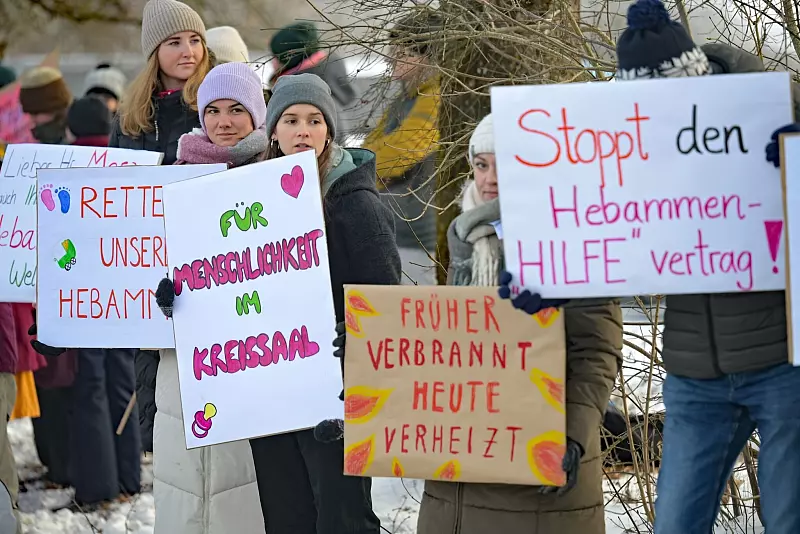 Liebe
auch
Heba
RETTE
UNSERE
HEBAMM
FÜR
MENSCHLICHKEIT
IM
KREISSAAL
FRÜHER
VERBRANNT
HEUTE
VERHEIZT
Stoppt den
Hebammen-
HILFE" vertrag!